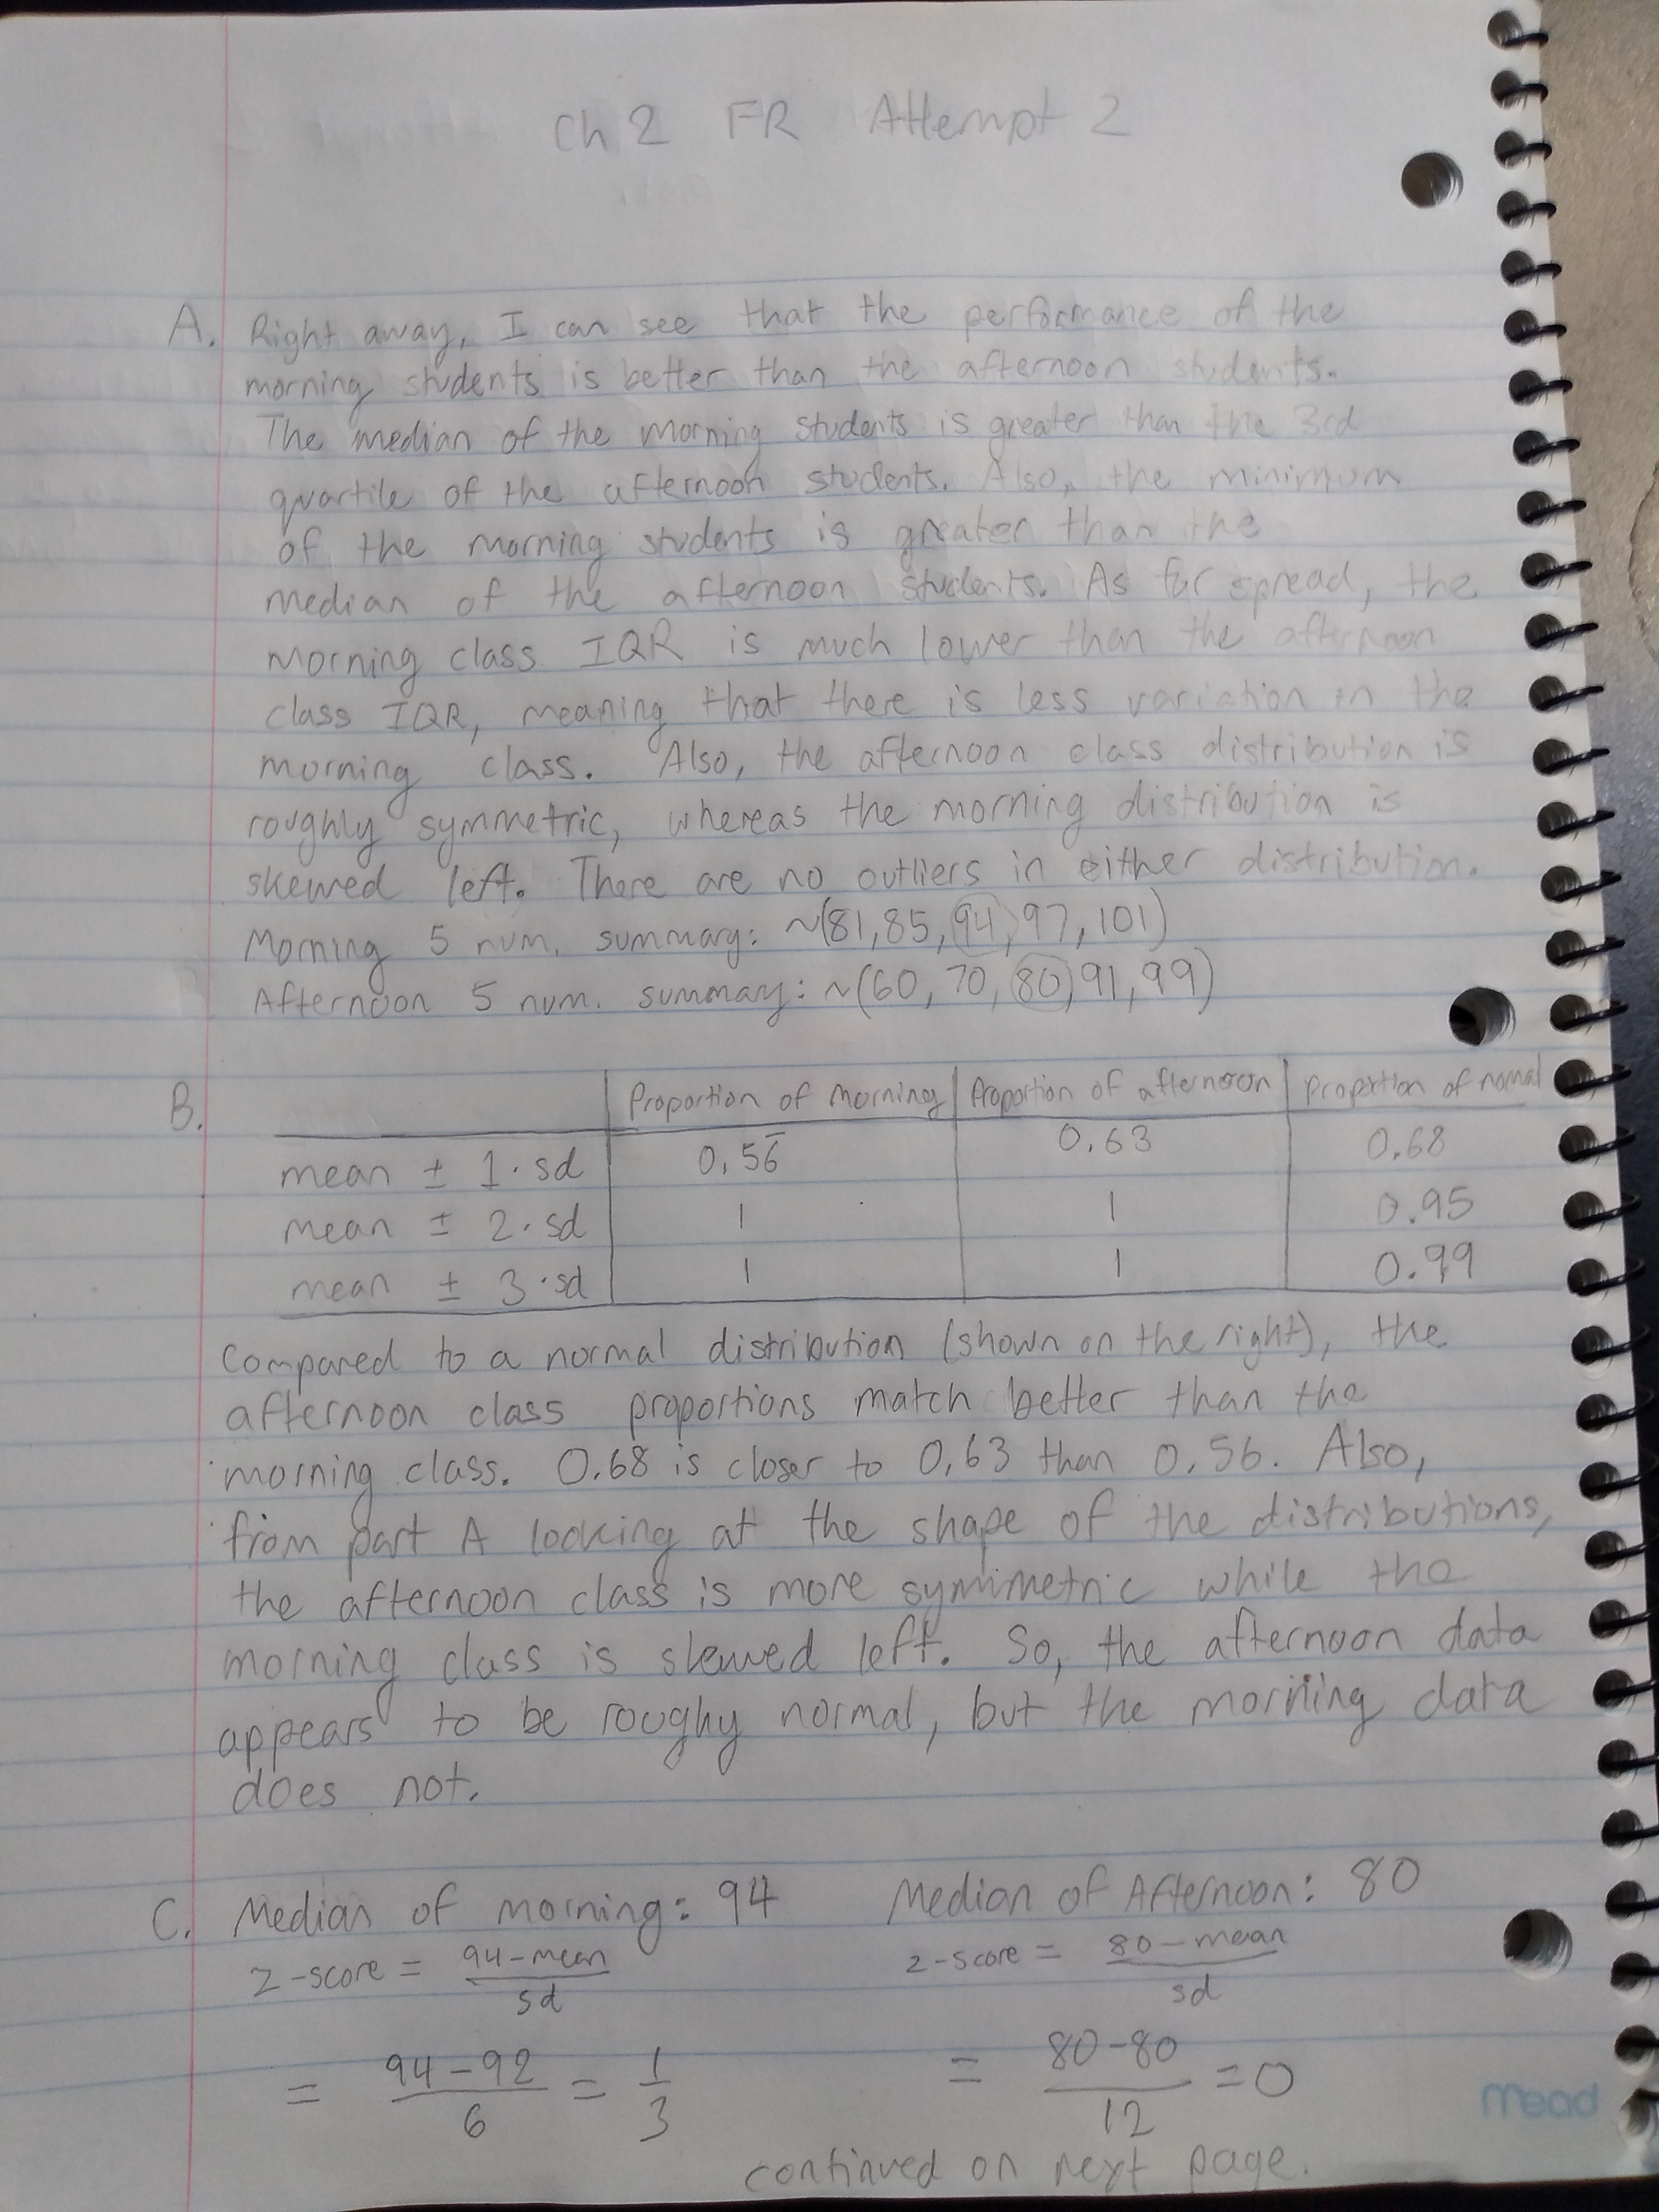 Ch 2 FR Attempt 2
A. Right away, I can see that the performance of the
morning students is better than the afternoon students.
The median of the morning students is greater than the 3rd
quartile of the afternoon students. Also, the minimum
of the morning students is greater than the
median of the afternoon students. As far spread, the
morning class IQR is much lower than the afternoon
class IQR, meaning that there is less variation in the
morning class. Also, the afternoon class distribution is
roughly symmetric, whereas the morning distribution is
skewed left. There are no outliers in either distribution.
Morning 5 num. summary: ~(81, 85, 94, 97, 101)
Afternoon 5 num. summary: ~(60, 70, 80, 91, 99)
B. Proportion of morning Proportion of afternoon Proportion of normal
mean ± 1·sd 0.56 0.63 0.68
mean ± 2·sd 1 1 0.95
mean ± 3·sd 1 1 0.99
Compared to a normal distribution (shown on the right), the
afternoon class proportions match better than the
morning class. 0.68 is closer to 0.63 than 0.56. Also,
from part A looking at the shape of the distributions,
the afternoon class is more symmetric while the
morning class is skewed left. So, the afternoon data
appears to be roughy normal, but the morning data
does not.
C. Median of morning: 94 Median of Afternoon: 80
z-score = 94-mean/sd z-score = 80-mean/sd
= 94-92/6 = 1/3 = 80-80/12 = 0
continued on next page.
Mead